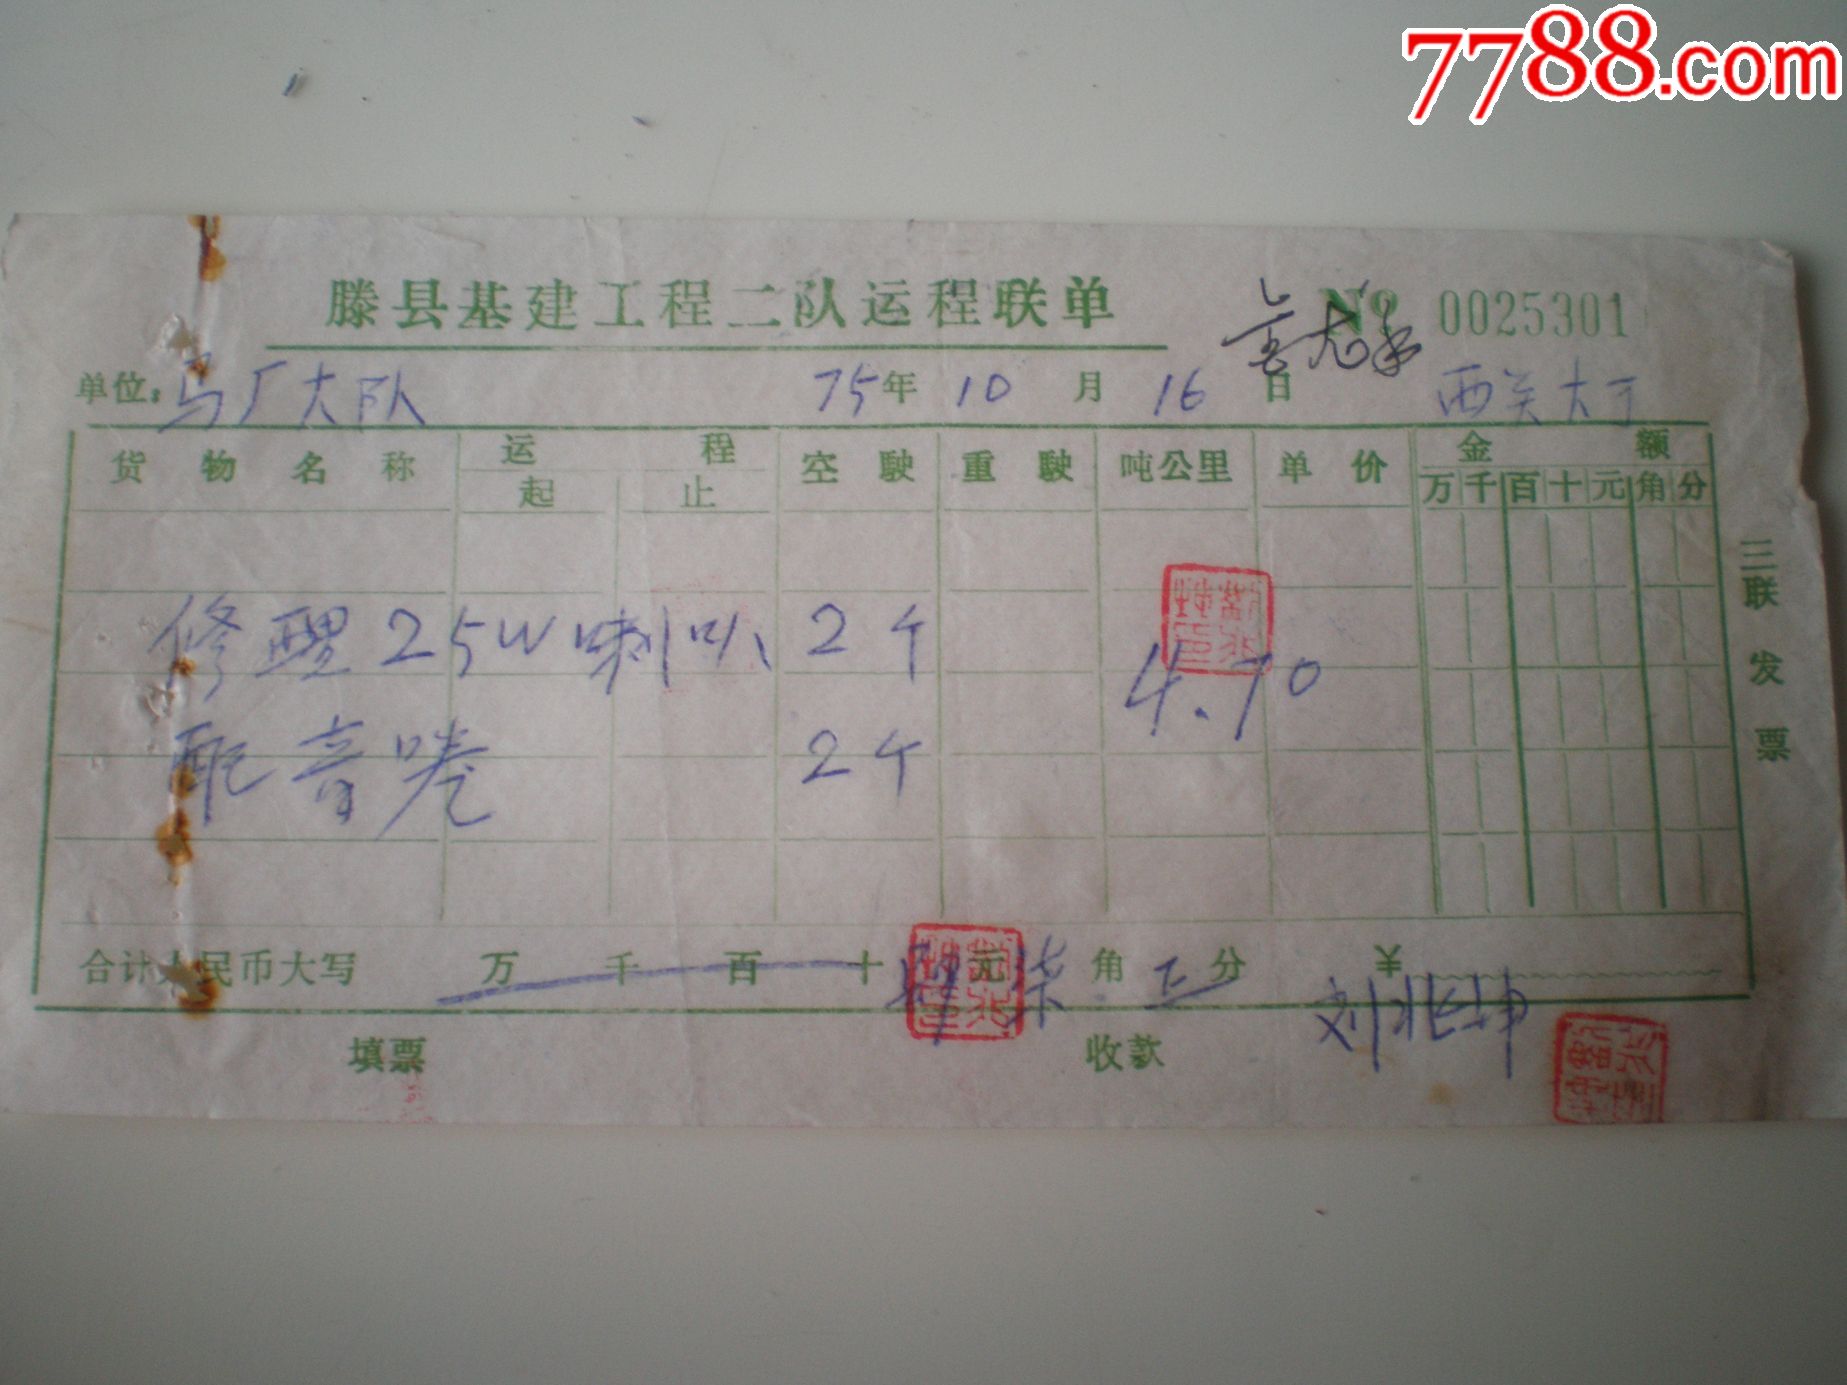 7788.com
滕县基建工程二队运程联单
№ 0025301
单位：马厂大队 75年 10月 16日 西关大丁
货物名称 运程 空驶 重驶 吨公里 单价 金额
起 止 万千百十元角分
修理25W喇叭 2个 4.70
配音圈 2个
三联发票
合计人民币大写 万千百十 元 柒角 分 ¥
填票 收款 刘兆坤